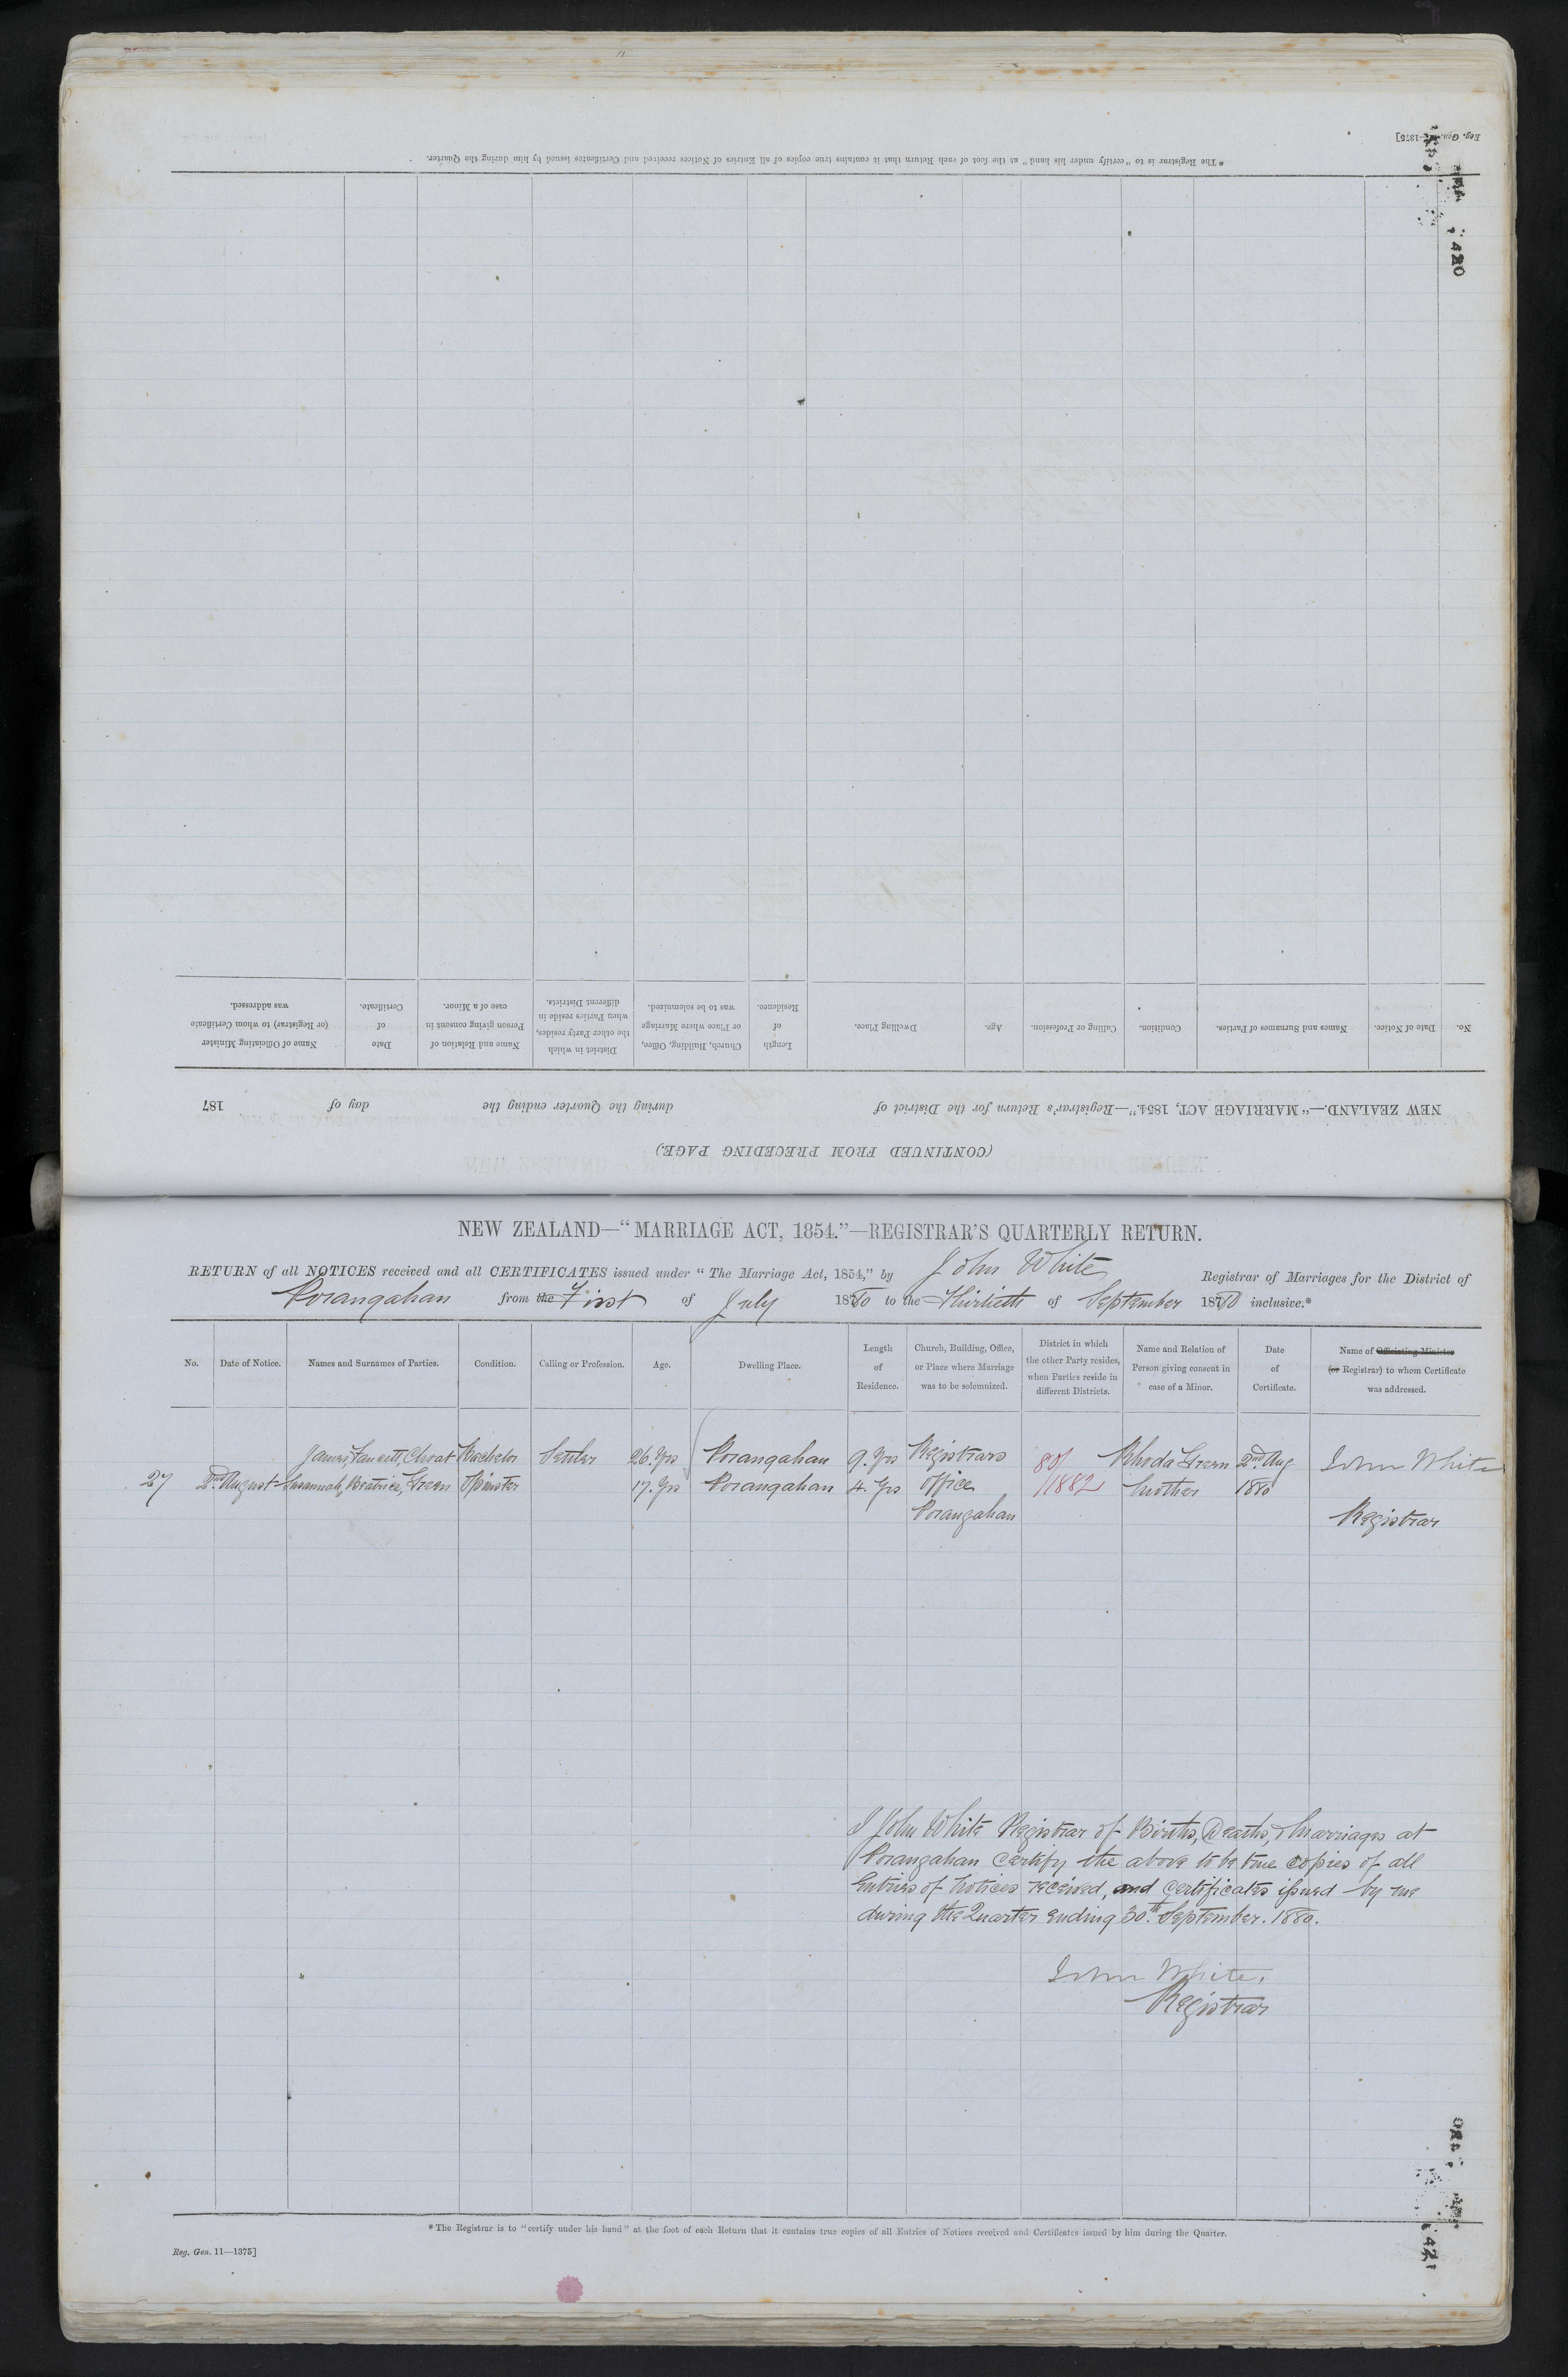 Reg. Gen. 11—1375]
* The Registrar is to "certify under his hand" at the foot of each Return that it contains true copies of all Entries of Notices received and Certificates issued by him during the Quarter.
420
(CONTINUED FROM PRECEDING PAGE.)
NEW ZEALAND.—"MARRIAGE ACT, 1854."—Registrar's Return for the District of during the Quarter ending the day of 187
No. Date of Notice. Names and Surnames of Parties. Condition. Calling or Profession. Age. Dwelling Place. Length of Residence. Church, Building, Office, or Place where Marriage was to be solemnized. District in which the other Party resides, when Parties reside in different Districts. Name and Relation of Person giving consent in case of a Minor. Date of Certificate. Name of Officiating Minister (or Registrar) to whom Certificate was addressed.
NEW ZEALAND—"MARRIAGE ACT, 1854."—REGISTRAR'S QUARTERLY RETURN.
RETURN of all NOTICES received and all CERTIFICATES issued under "The Marriage Act, 1854," by John White Registrar of Marriages for the District of
Porangahau from the First of July 1880 to the Thirtieth of September 1880 inclusive.*
No. Date of Notice. Names and Surnames of Parties. Condition. Calling or Profession. Age. Dwelling Place. Length of Residence. Church, Building, Office, or Place where Marriage was to be solemnized. District in which the other Party resides, when Parties reside in different Districts. Name and Relation of Person giving consent in case of a Minor. Date of Certificate. Name of Officiating Minister (or Registrar) to whom Certificate was addressed.
James, Fancett, Choat Bachelor Settler 26. Yrs Porangahau 9. Yrs Registrars 80/ Rhoda 2nd Aug John White
27 2nd August Susannah, Beatrice, Spinster 17. Yrs Porangahau 4. Yrs Office /1882 Mother 1880
Porangahau Registrar
I John White Registrar of Births, Deaths, & Marriages at
Porangahau Certify the above to be true copies of all
Entries of Notices received, and Certificates issued by me
during the Quarter Ending 30th September. 1880.
John White.
Registrar
* The Registrar is to "certify under his hand" at the foot of each Return that it contains true copies of all Entries of Notices received and Certificates issued by him during the Quarter.
Reg. Gen. 11—1375]
421